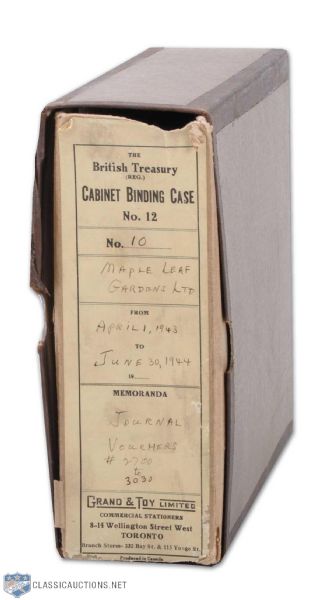 THE
British Treasury
(REG.)
CABINET BINDING CASE
No. 12
No. 10
MAPLE LEAF
GARDENS LTD
FROM
APRIL 1, 1943
TO
JUNE 30, 1944
MEMORANDA
JOURNAL
VOUCHERS
# 2700
to
3030
GRAND & TOY LIMITED
COMMERCIAL STATIONERS
8-14 Wellington Street West
TORONTO
Branch Stores- 332 Bay St. & 115 Yonge St.
Produced in Canada
CLASSICAUCTIONS.NET